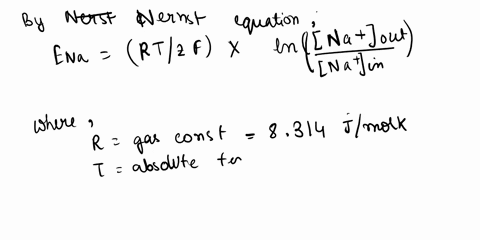 By Nernst Nernst equation,
ENa = (RT/zF) × ln([Na+]out/[Na+]in)
where,
R = gas const = 8.314 J/molk
T = absolute te